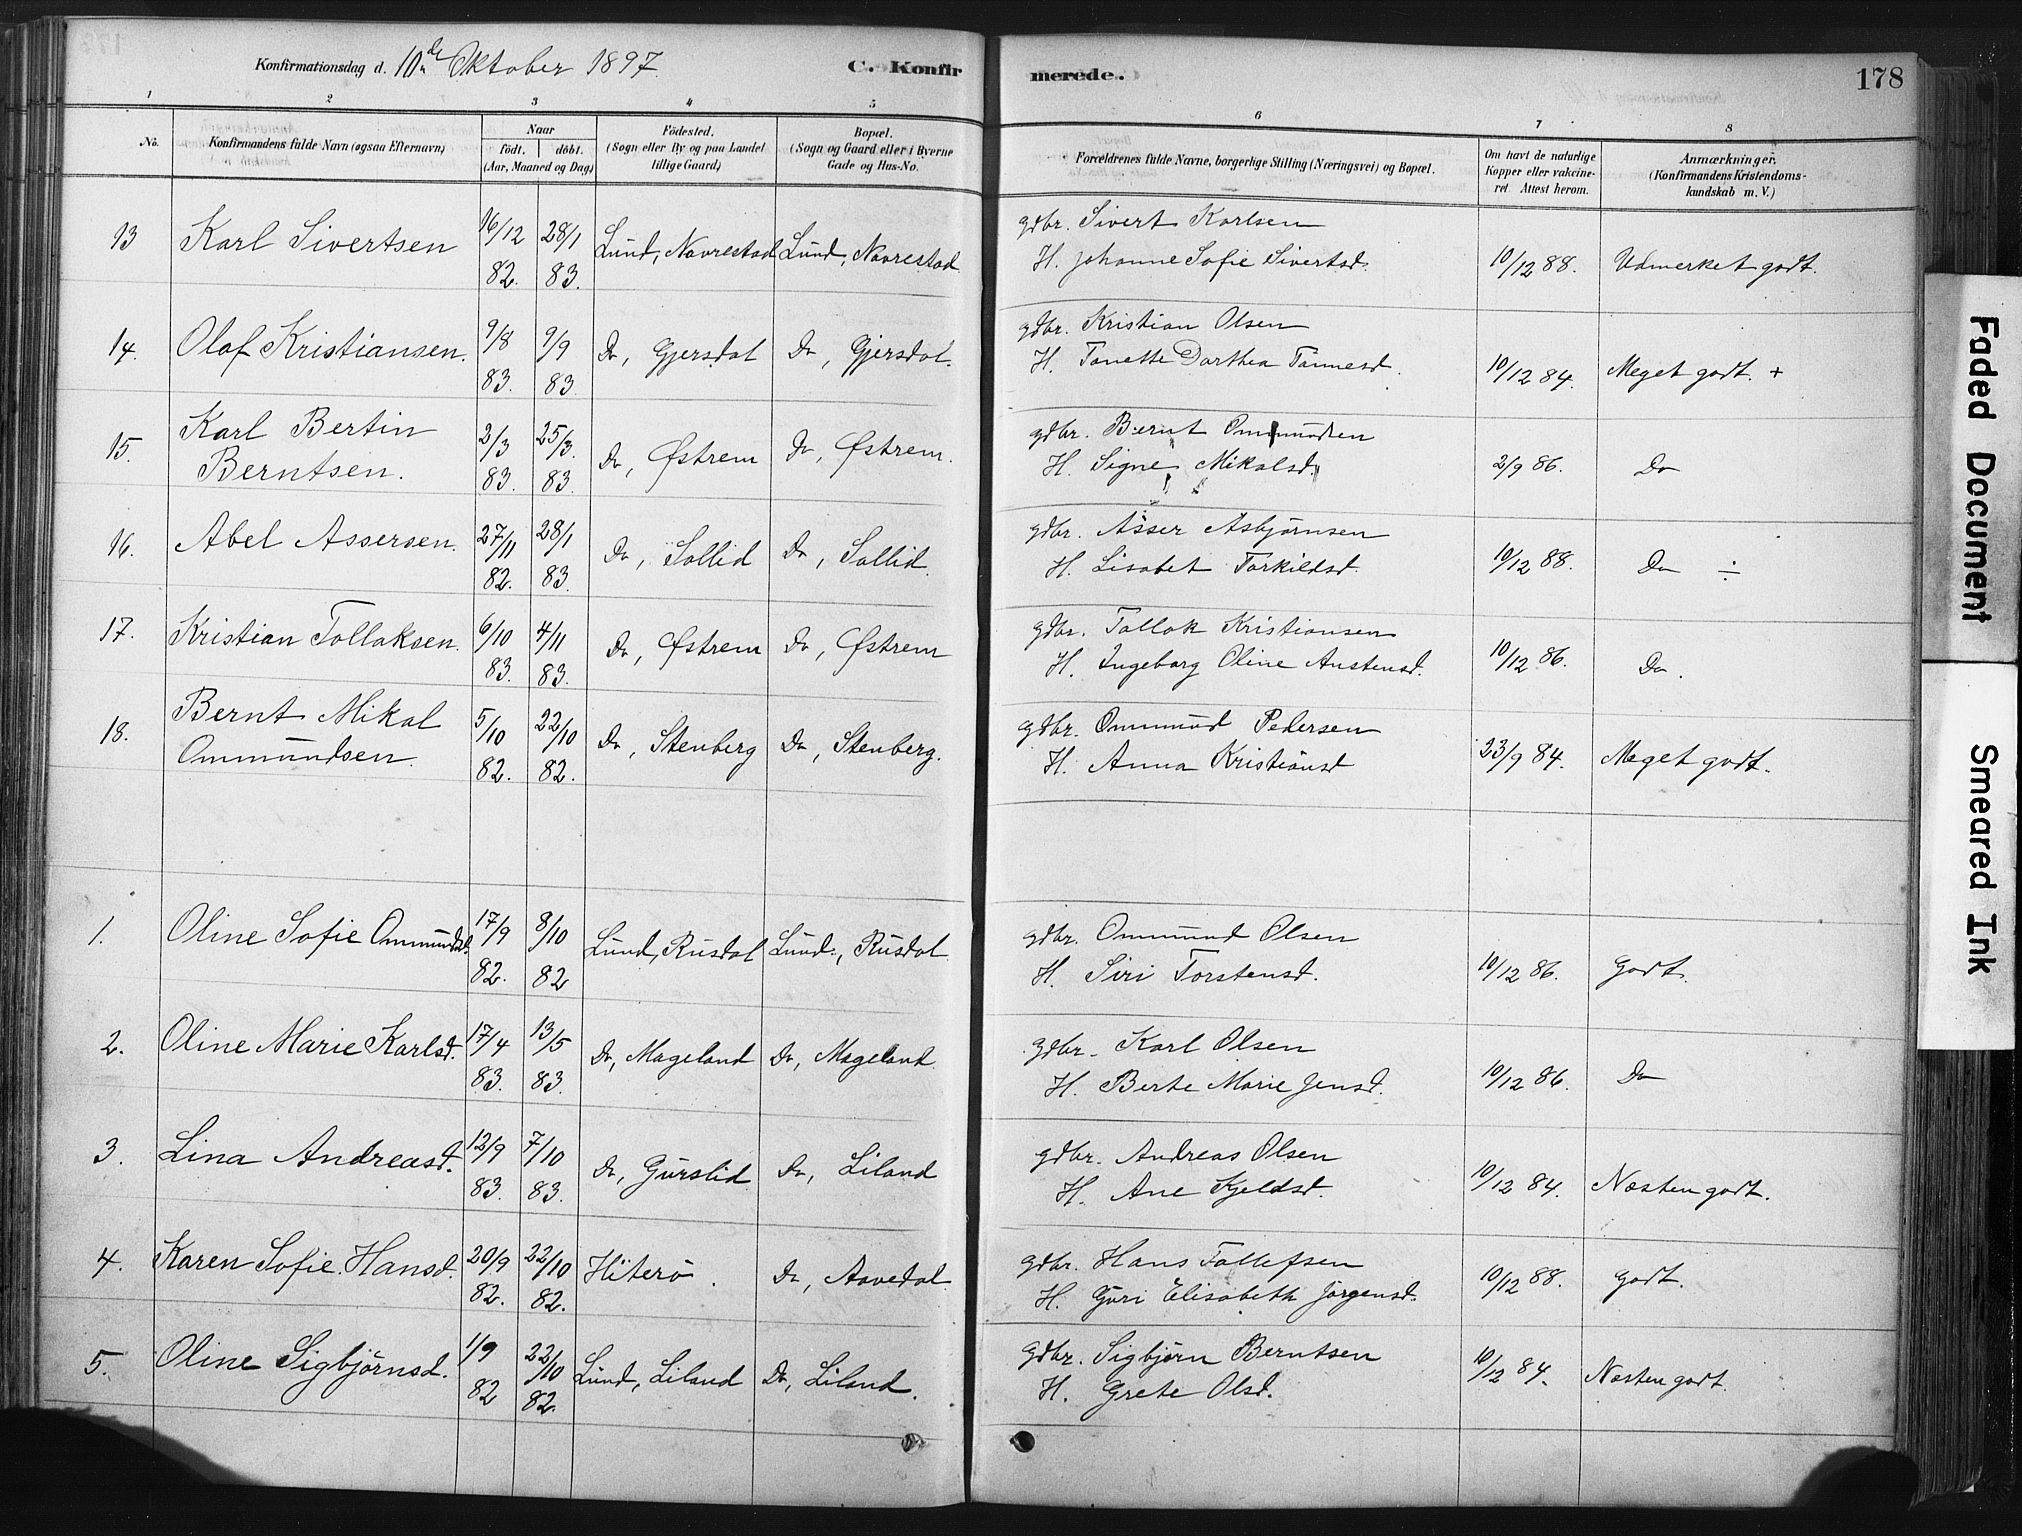 Konfirmationsdag d. 10de Oktober 1897. C. Konfir merede. 178
1 2 3 4 5 6 7 8
No. Konfirmandens fulde Navn (ogsaa Efternavn) Naar födt. döbt. (Aar, Maaned og Dag) Födested. (Sogn eller By og paa Landet tillige Gaard) Bopæl. (Sogn og Gaard eller i Byerne Gade og Hus-No. Forældrenes fulde Navne, borgerlige Stilling (Næringsvei) og Bopæl. Om havt de naturlige Kopper eller vakcineret. Attest herom. Anmærkninger. (Konfirmandens Kristendomskundskab m. V.)
13 Karl Sivertsen 16/12 82. 28/1 83. Lund, Navrestad Lund, Navrestad gdbr. Sivert Karlsen
H. Johanne Sofie Sivertsd. 10/12 88. Udmerket godt.
14. Olaf Kristiansen. 9/8 83. 9/9 83. Do, Gjersdal Do, Gjersdal. gdbr. Kristian Olsen
H. Tonette Dorthea Tönnesd. 10/12 84. Meget godt. +
15. Karl Bertin Berntsen. 2/3 83. 25/3 83. Do, Østrem Do, Østrem. gdbr. Bernt Ommundsen
H. Signe Mikalsd. 2/9 86. Do
16. Abel Assersen. 27/11 82. 28/1 83. Do, Sollid Do, Sollid. gdbr. Asser Asbjørnsen
H. Lisabet Torkildsd. 10/12 88. Do ÷
17. Kristian Tollaksen. 6/10 83. 4/11 83. Do, Østrem Do, Østrem gdbr. Tollak Kristiansen
H. Ingeborg Oline Austensd. 10/12 86. Do.
18. Bernt Mikal Ommundsen. 5/10 82. 22/10 82. Do, Stenberg Do, Stenberg. gdbr. Ommund Pedersen
H. Anna Kristiansd 23/9 84. Meget godt.
1. Oline Sofie Ommundsd. 17/9 82. 8/10 82 Lund, Rusdal Lund, Rusdal gdbr. Ommund Olsen
H. Siri Torstensd. 10/12 86. godt.
2. Oline Marie Karlsd. 17/4 83. 13/5 83. Do, Mageland Do, Mageland. gdbr. Karl Olsen
H. Berte Marie Jensd. 10/12 86. Do
3. Lina Andreasd. 12/9 83. 7/10 83. Do, Gurslid Do, Liland gdbr. Andreas Olsen
H. Ane Kjeldsd. 10/12 84. Næsten godt.
4. Karen Sofie Hansd. 20/9 82. 22/10 82. Hiterö. Do, Aavedal. gdbr. Hans Tollefsen
H. Guri Elisabeth Jörgensd. 10/12 88. godt.
5. Oline Sigbjörnsd. 1/9 82 22/10 82. Lund, Liland Do, Liland. gdbr. Sigbjörn Berntsen
H. Grete Olsd. 10/12 84. Næsten godt.
Faded Document
Smeared Ink